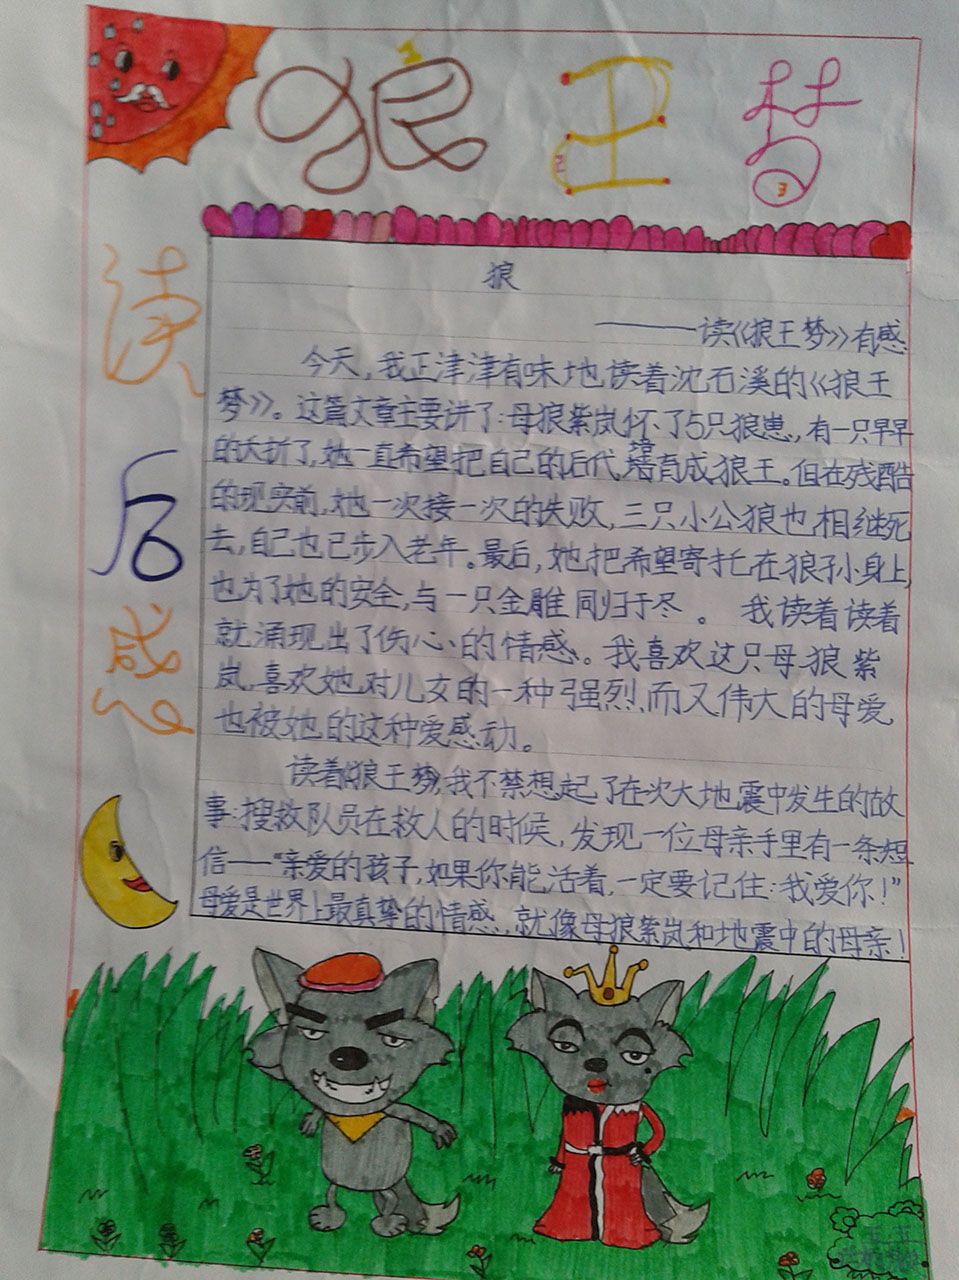 狼王梦
读后感
狼
——读《狼王梦》有感
今天，我正津津有味地读着沈石溪的《狼王
梦》。这篇文章主要讲了：母狼紫岚怀了5只狼崽，有一只早早
的夭折了，她一直希望把自己的后代，培育成狼王。但在残酷
的现实前，她一次接一次的失败，三只小公狼也相继死
去，自己也已步入老年。最后，她把希望寄托在狼孙身上，
也为了她的安全，与一只金雕同归于尽。我读着读着
就涌现出了伤心的情感。我喜欢这只母狼紫
岚，喜欢她对儿女的一种强烈、而又伟大的母爱
也被她的这种爱感动。
读着《狼王梦》，我不禁想起了在次大地震中发生的故
事：搜救队员在救人的时候，发现一位母亲手里有一条短
信——“亲爱的孩子，如果你能活着，一定要记住：我爱你！”
母爱是世界上最真挚的情感，就像母狼紫岚和地震中的母亲！